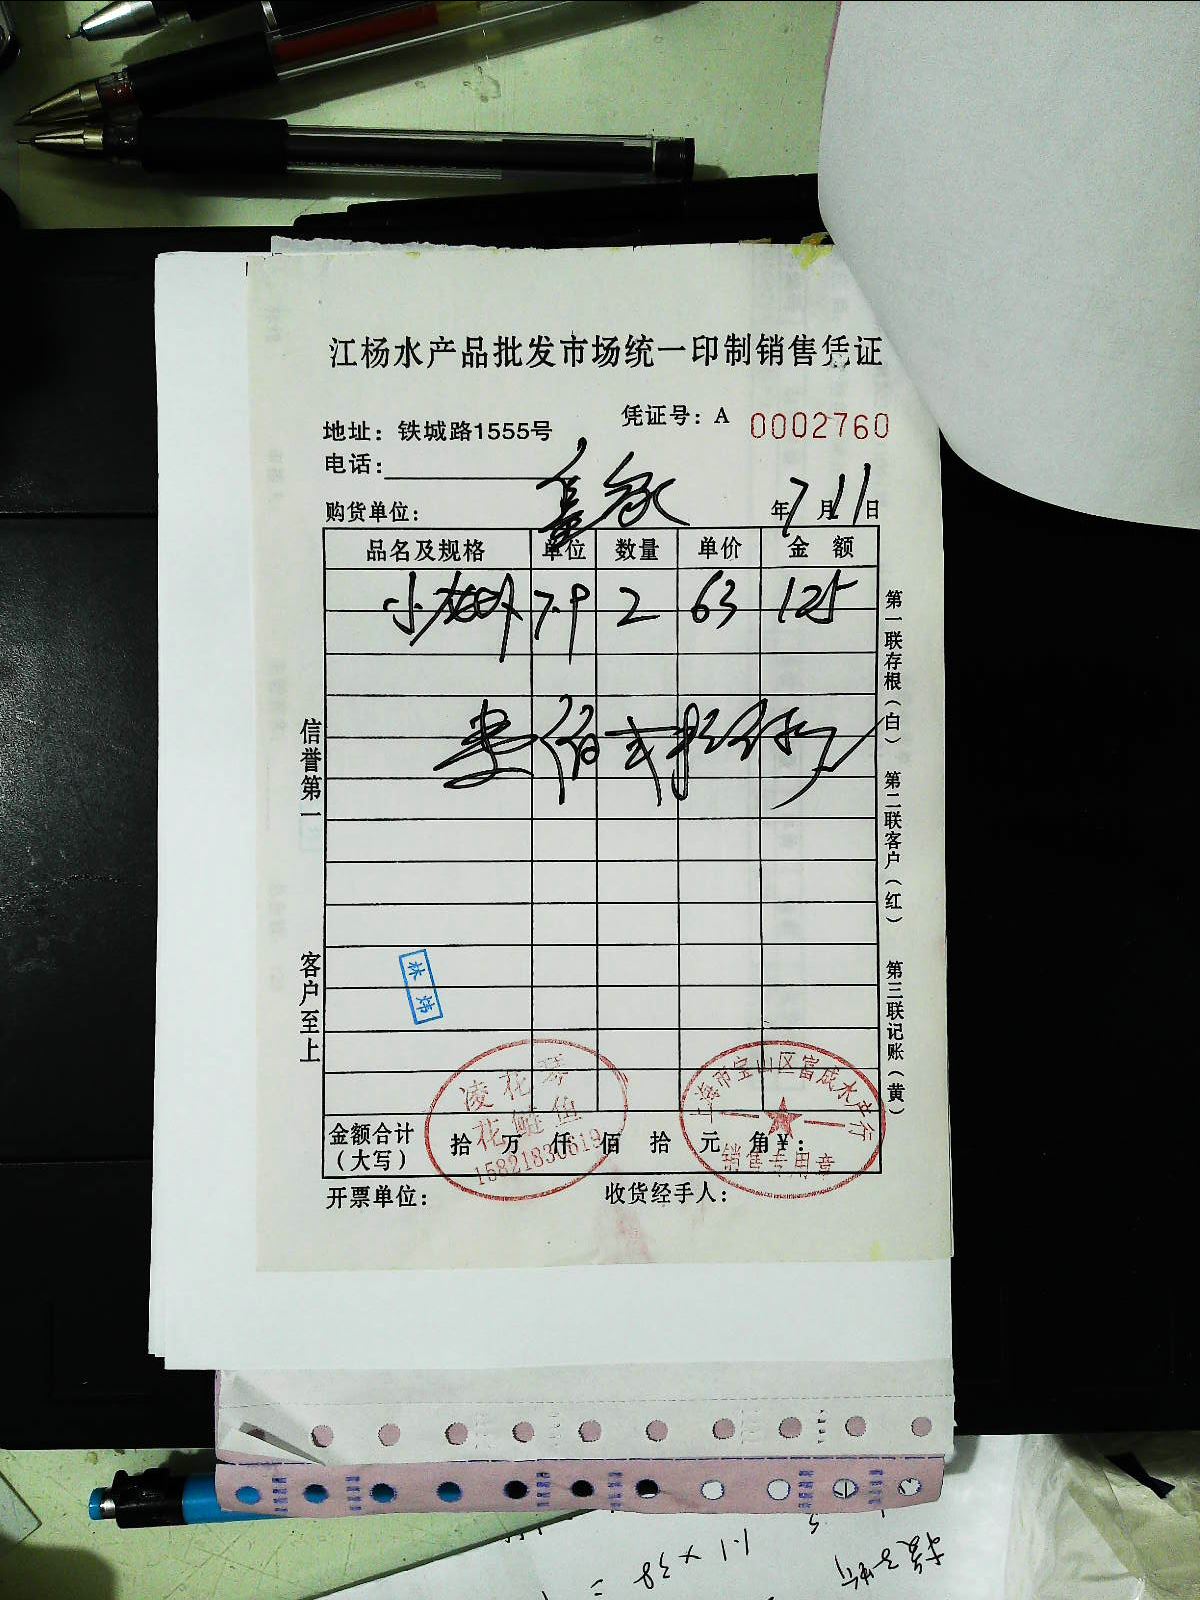 江杨水产品批发市场统一印制销售凭证
凭证号：A 0002760
地址：铁城路1555号
电话：
购货单位： 年7月11日
品名及规格 单位 数量 单价 金额
7.9 2 63 125
壹佰贰拾伍
信誉第一
客户至上
第一联存根（白）
第二联客户（红）
第三联记账（黄）
林炜
凌花琴
花鲢鱼
上海市宝山区富成水产行
销售专用章
金额合计（大写） 拾 万 仟 佰 拾 元 角 ¥：
开票单位： 收货经手人：
1.1 × 38 =